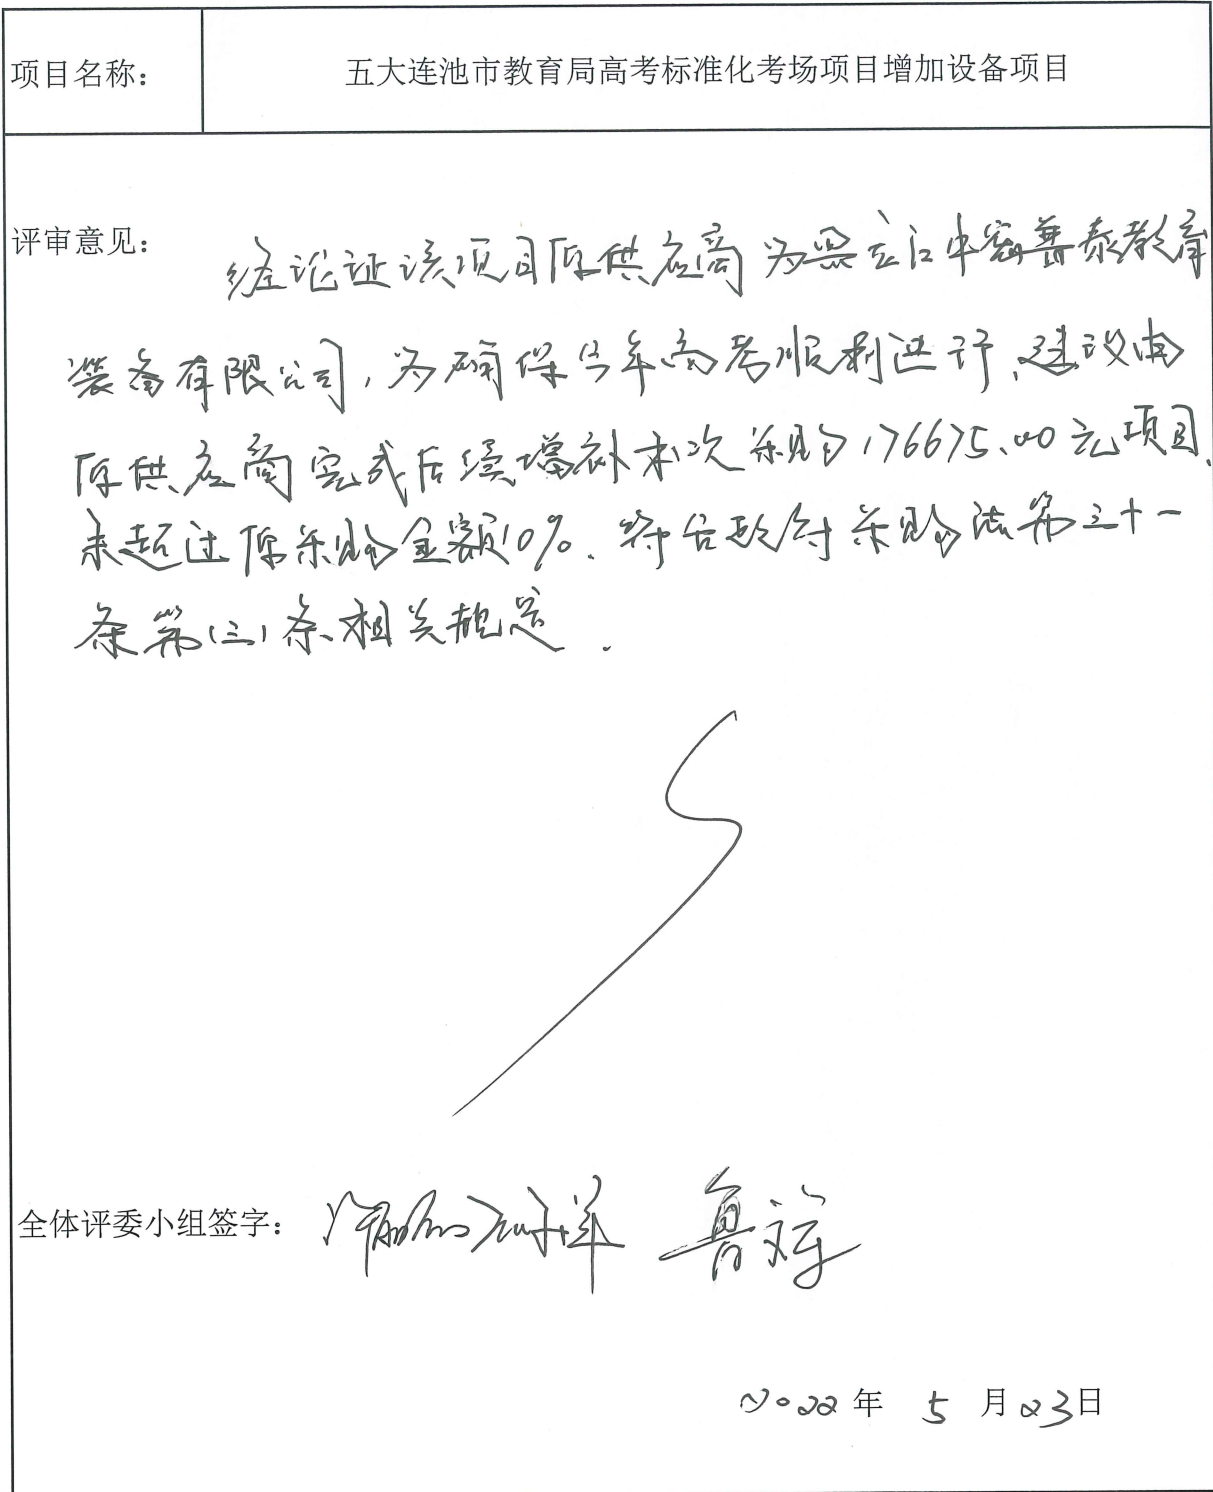 项目名称：
五大连池市教育局高考标准化考场项目增加设备项目
评审意见：
经论证该项目原供应商为黑龙江中普泰教育
装备有限公司，为确保今年高考顺利进行，建议由
原供应商完成后续增补本次采购176675.00元项目，
未超过原采购金额10%．符合政府采购法第三十一
条第(三)条相关规定．
全体评委小组签字：
2022年 5 月23日